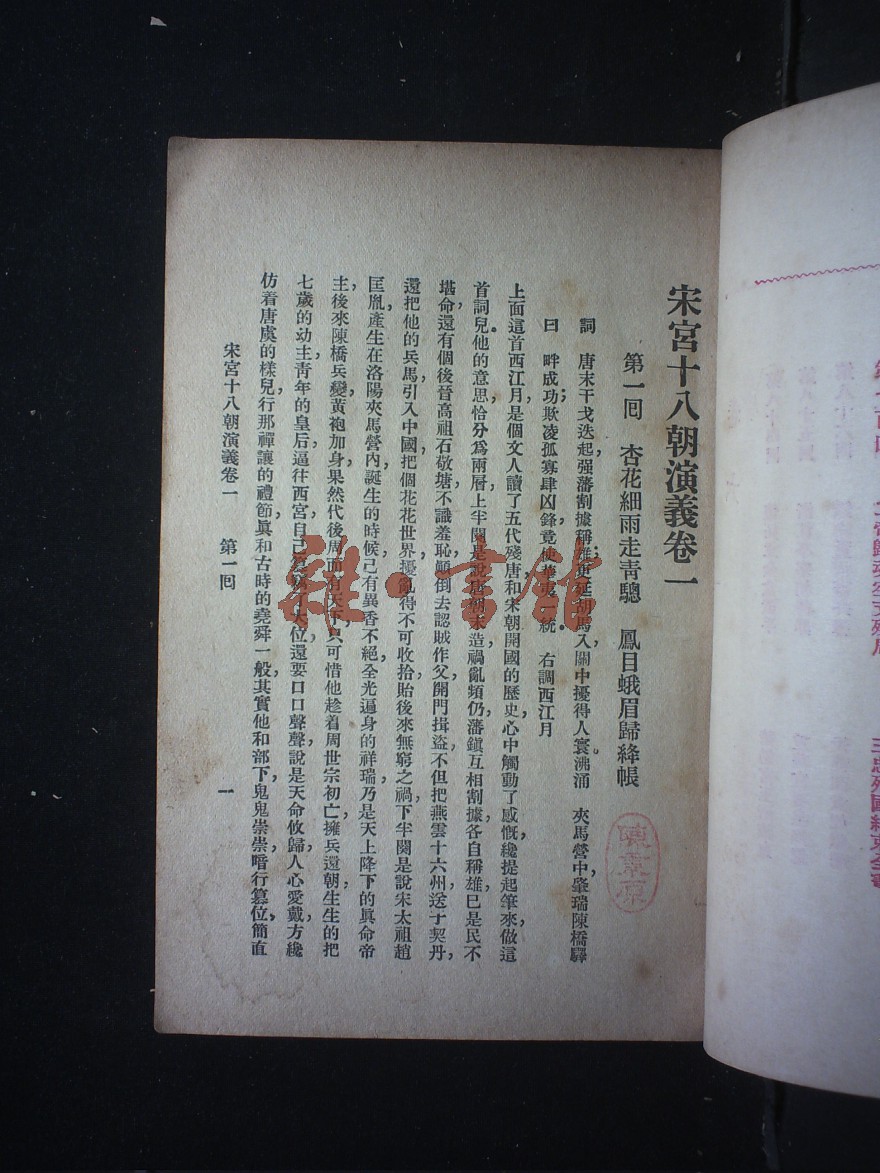 宋宮十八朝演義卷一
第一回　杏花細雨走青驄　鳳目蛾眉歸絳帳
詞　唐末干戈迭起强藩割據稱雄更延胡馬入關中擾得人寰沸涌　夾馬營中肇瑞陳橋驛
曰　畔成功欺凌孤寡肆凶鋒竟使華夷一統。右調西江月
上面這首西江月，是個文人讀了五代殘唐和宋朝開國的歷史，心中觸動了感慨，纔提起筆來，做這
首詞兒。他的意思，恰分為兩層，上半闋是說唐朝末造，禍亂頻仍，藩鎮互相割據，各自稱雄，巳是民不
堪命，還有個後晉高祖石敬塘，不識羞恥，顚倒去認賊作父，開門揖盜，不但把燕雲十六州送于契丹，
還把他的兵馬引入中國，把個花花世界擾亂得不可收拾，貽後來無窮之禍，下半闋是說宋太祖趙
匡胤，產生在洛陽夾馬營內，誕生的時候，己有異香不絕，全光遍身的祥瑞，乃是天上降下的眞命帝
主，後來陳橋兵變，黃袍加身，果然代後周而有天下，只可惜他趁着周世宗初亡，擁兵還朝，生生的把
七歲的幼主，青年的皇后，逼往西宮，自己 了大位，還要口口聲聲，說是天命攸歸，人心愛戴，方纔
仿着唐虞的樣兒，行那禪讓的禮節，眞和古時的堯舜一般，其實他和部下鬼鬼崇崇，暗行篡位，簡直
宋宮十八朝演義卷一　第一回　一
雜·書館